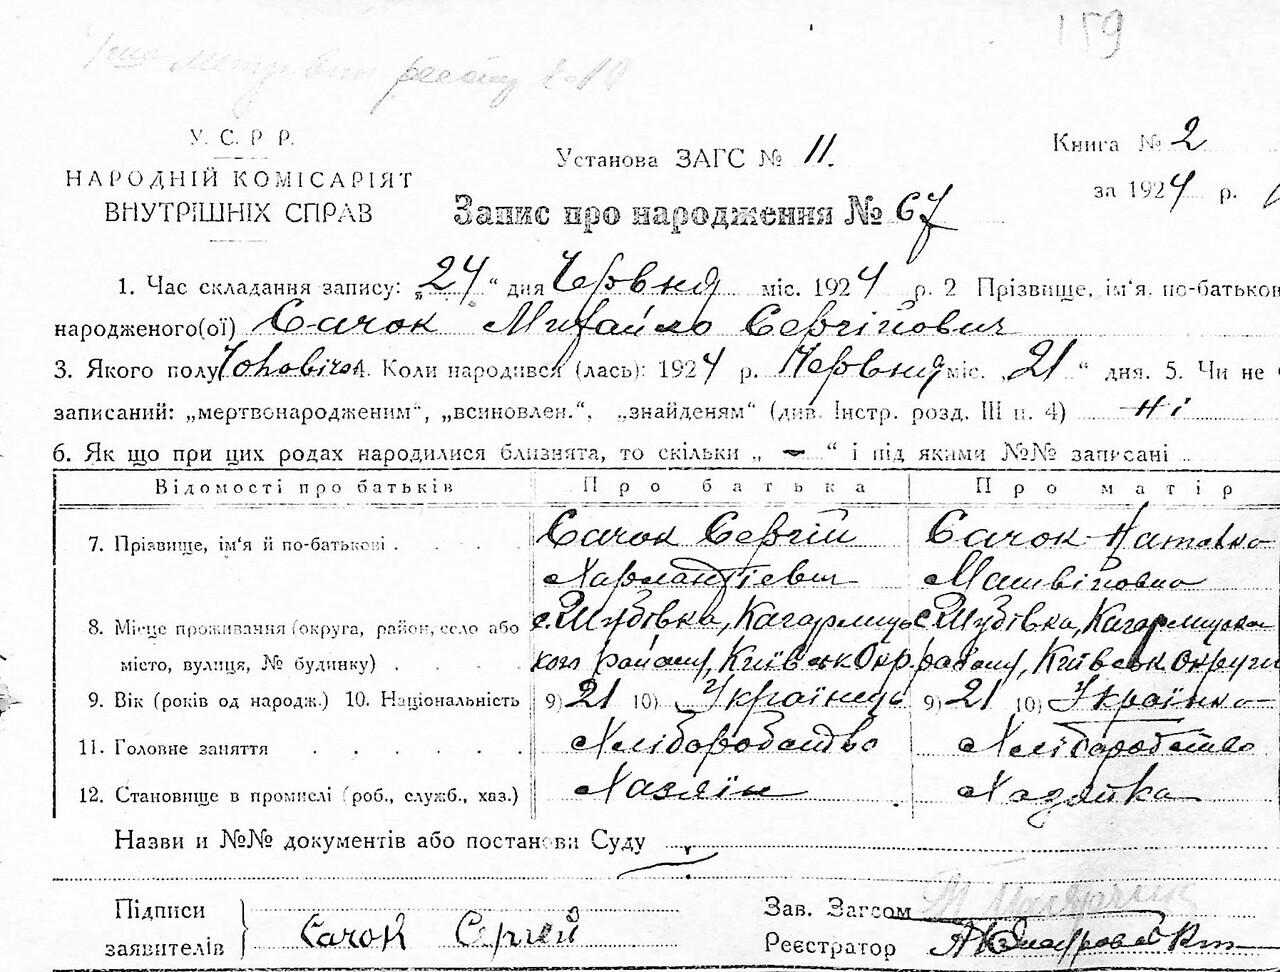 159
У. С. Р Р.
НАРОДНІЙ КОМІСАРІЯТ
ВНУТРІШНІХ СПРАВ
Установа ЗАГС № 11.
Книга № 2
за 1924 р.
Запис про народження № 67
1. Час складання запису: „24“ дня Червня міс. 1924 р. 2 Прізвище, ім'я, по-батькові
народженого(ої) Сачок Михайло Сергійович
3. Якого полу Чоловічої. Коли народився (лась): 1924 р. Червня міс. „21“ дня. 5. Чи не
записаний: „мертвонародженим“, „всиновлен.“, „знайденям“ (див. Інстр. розд. III п. 4) ні
6. Як що при цих родах народилися близнята, то скільки „ — “ і під якими №№ записані
Відомості про батьків Про батька Про матір
7. Прізвище, ім'я й по-батькові . . . . Сачок Сергій Сачок Наталка
Харлантієвич Матвіїовна
8. Місце проживання (округа, район, село або с. Шубівка, Кагарлиць с. Шубівка, Кагарлицька
місто, вулиця, № будинку) . . . . кого району, Київськ Окр. району, Київськ Округи
9. Вік (років од народж.) 10. Національність 9) 21 10) Українець 9) 21 10) Українка
11. Головне заняття . . . . . . Хліборобство Хліборобство
12. Становище в промислі (роб., служб., хаз.) Хазяїн Хазяйка
Назви и №№ документів або постанови Суду
Підписи
заявителів Сачок Сергей
Зав. Загсом
Реєстратор